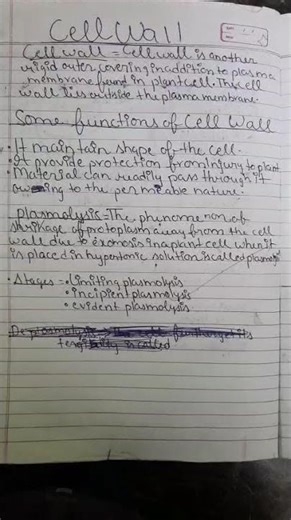 Cell Wall
Cell wall = Cell wall is another
rigid outer covering in addition to plasma
membrane found in plant cell. The cell
wall lies outside the plasma membrane.
Some functions of Cell Wall
• It maintain shape of the cell.
• It provide protection from injury to plant
• Material can readily pass through it
owing to the permeable nature.
plasmolysis = The phenomenon of
shrinkage of protoplasm away from the cell
wall due to exosmosis in a plant cell when it
is placed in hypertonic solution is called plasmolysis
• Stages = • limiting plasmolysis
• incipient plasmolysis
• evident plasmolysis
is called